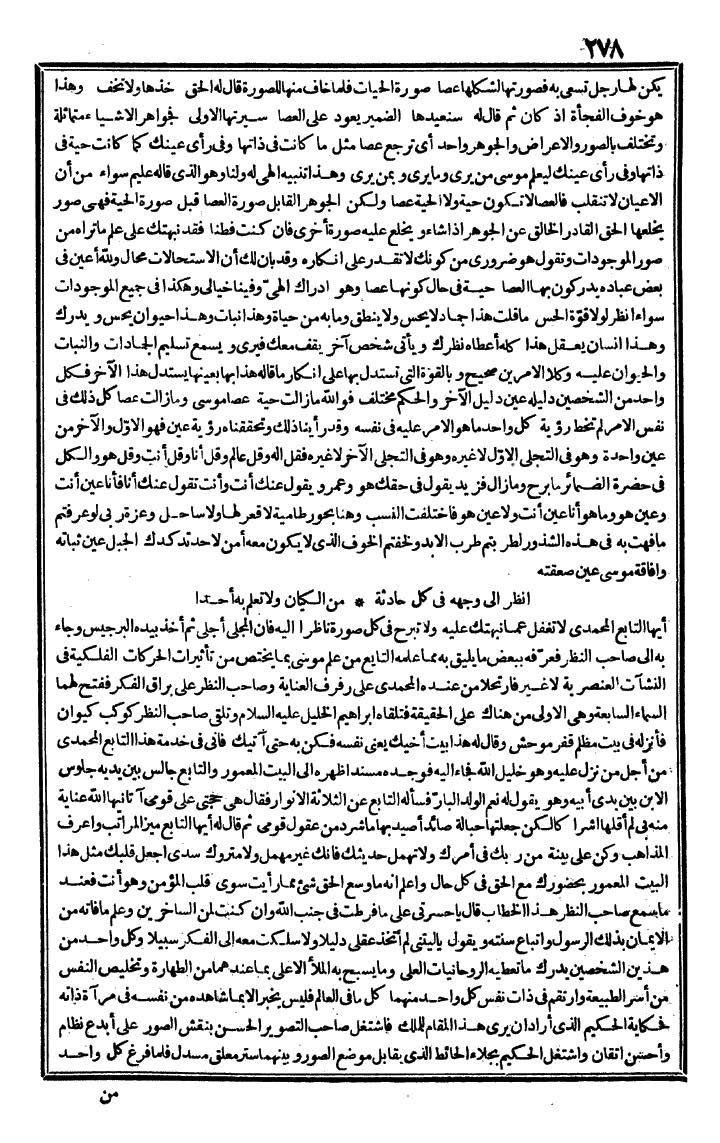 ٢٧٨
يكن لها رجل تسعى به فصورتها لشكلها عصا صورة الحيات فلما خاف منها للصورة قال له الحق خذها ولا تخف وهذا
هو خوف الفجأة اذ كان ثم قال له سنعيدها الضمير يعود على العصا سيرتها الاولى فجواهر الاشياء متماثلة
وتختلف بالصور والاعراض والجوهر واحد أى ترجع عصا مثل ما كانت فى ذاتها وفى رأى عينك كما كانت حية فى
ذاتها وفى رأى عينك ليعلم موسى من يرى وما يرى وبمن يرى وهذا تنبيه الهى له ولنا وهو الذى قاله عليم سواء من أن
الاعيان لا تنقلب فالعصا لا تكون حية ولا الحية عصا ولكن الجوهر القابل صورة العصا قبل صورة الحية فهى صور
يخلعها الحق القادر الخالق عن الجوهر اذا شاء ويخلع عليه صورة أخرى فان كنت فطنا فقد نبهتك على علم ما تراه من
صور الموجودات وتقول هو ضرورى من كونك لا تقدر على انكاره وقد بان لك أن الاستحالات محال ولله أعين فى
بعض عباده يدركون بها العصا حية فى حال كونها عصا وهو ادراك الهىّ وفينا خيالى وهكذا فى جميع الموجودات
سواء انظر لولا قوّة الحس ما قلت هذا جماد لا يحس ولا ينطق وما به من حياة وهذا نبات وهذا حيوان يحس ويدرك
وهذا انسان يعقل هذا كله أعطاه نظرك ويأتى شخص آخر يقف معك فيرى ويسمع تسليم الجمادات والنبات
والحيوان عليه وكلا الامرين صحيح وبالقوة التى تستدل بها على انكار ما قاله هذا بها بعينها يستدل هذا الآخر فكل
واحد من الشخصين دليله عين دليل الآخر والحكم مختلف فوالله ما زالت حية عصا موسى وما زالت عصا كل ذلك فى
نفس الامر لم تخط رؤية كل واحد ما هو الامر عليه فى نفسه وقد رأينا ذلك وتحققناه رؤية عين فهو الاوّل والآخر من
عين واحدة وهو فى التجلى الاوّل لا غيره وهو فى التجلى الآخر لا غيره فقل اله وقل عالم وقل أنا وقل أنت وقل هو والكل
فى حضرة الضمائر ما برح وما زال فزيد يقول فى حقك هو وعمرو يقول عنك أنت وأنت تقول عنك أنا فأنا عين أنت
وعين هو وما هو أنا عين أنت ولا عين هو فاختلفت النسب وهنا بحور طامية لا قعر لها ولا ساحل وعزة ربى لو عرفتم
ما فهت به فى هذه الشذور لطربتم طرب الابد ولخفتم الخوف الذى لا يكون معه أمن لاحد تدكدك الجبل عين ثباته
وافاقة موسى عين صعقته
انظر الى وجهه فى كل حادثة * من الكيان ولا تعلم به أحدا
أيها التابع المحمدى لا تغفل عما نبهتك عليه ولا تبرح فى كل صورة ناظرا اليه فان المجلى أجلى ثم أخذ بيده البرجيس وجاء
به الى صاحب النظر فعرّفه ببعض ما يليق به مما علمه التابع من علم موسى بما يختص من تأثيرات الحركات الفلكية فى
النشآت العنصرية لا غير فارتحلا من عنده المحمدى على رفرف العناية وصاحب النظر على براق الفكر ففتح لهما
السماء السابعة وهى الاولى من هناك على الحقيقة فتلقاه ابراهيم الخليل عليه السلام وتلقى صاحب النظر كوكب كيوان
فأنزله فى بيت مظلم قفر موحش وقال له هذا بيت أخيك يعنى نفسه فكن به حتى آتيك فانى فى خدمة هذا التابع المحمدى
من أجل من نزل عليه وهو خليل الله فجاء اليه فوجده مسندا ظهره الى البيت المعمور والتابع جالس بين يديه جلوس
الابن بين يدى أبيه وهو يقول له نعم الولد البارّ فسأله التابع عن الثلاثة الانوار فقال هى حجتى على قومى آتانيها الله عناية
منه بى لم أقلها اشرا كا لكن جعلتها حبالة صائد أصيد بها ما شرد من عقول قومى ثم قال له أيها التابع ميز المراتب واعرف
المذاهب وكن على بينة من ربك فى أمرك ولا تهمل حديثك فانك غير مهمل ولا متروك سدى اجعل قلبك مثل هذا
البيت المعمور بحضورك مع الحق فى كل حال واعلم انه ما وسع الحق شئ مما رأيت سوى قلب المؤمن وهو أنت فعند
ما سمع صاحب النظر هذا الخطاب قال يا حسرتى على ما فرطت فى جنب الله وان كنت لمن الساخرين وعلم ما فاته من
الايمان بذلك الرسول واتباع سنته ويقول يا ليتنى لم أتخذ عقلى دليلا ولا سلكت معه الى الفكر سبيلا وكل واحد من
هذين الشخصين يدرك ما تعطيه الروحانيات العلى وما يسبح به الملأ الاعلى بما عندهما من الطهارة وتخليص النفس
من أسر الطبيعة وارتقم فى ذات نفس كل واحد منهما كل ما فى العالم فليس يخبر الا بما شاهده من نفسه فى مرآة ذاته
فحكاية الحكيم الذى أراد ان يرى هذا المقام للملك فاشتغل صاحب التصوير الحسن بنقش الصور على أبدع نظام
وأحسن اتقان واشتغل الحكيم بجلاء الحائط الذى يقابل موضع الصور وبينهما ستر معلق مسدل فلما فرغ كل واحد
من